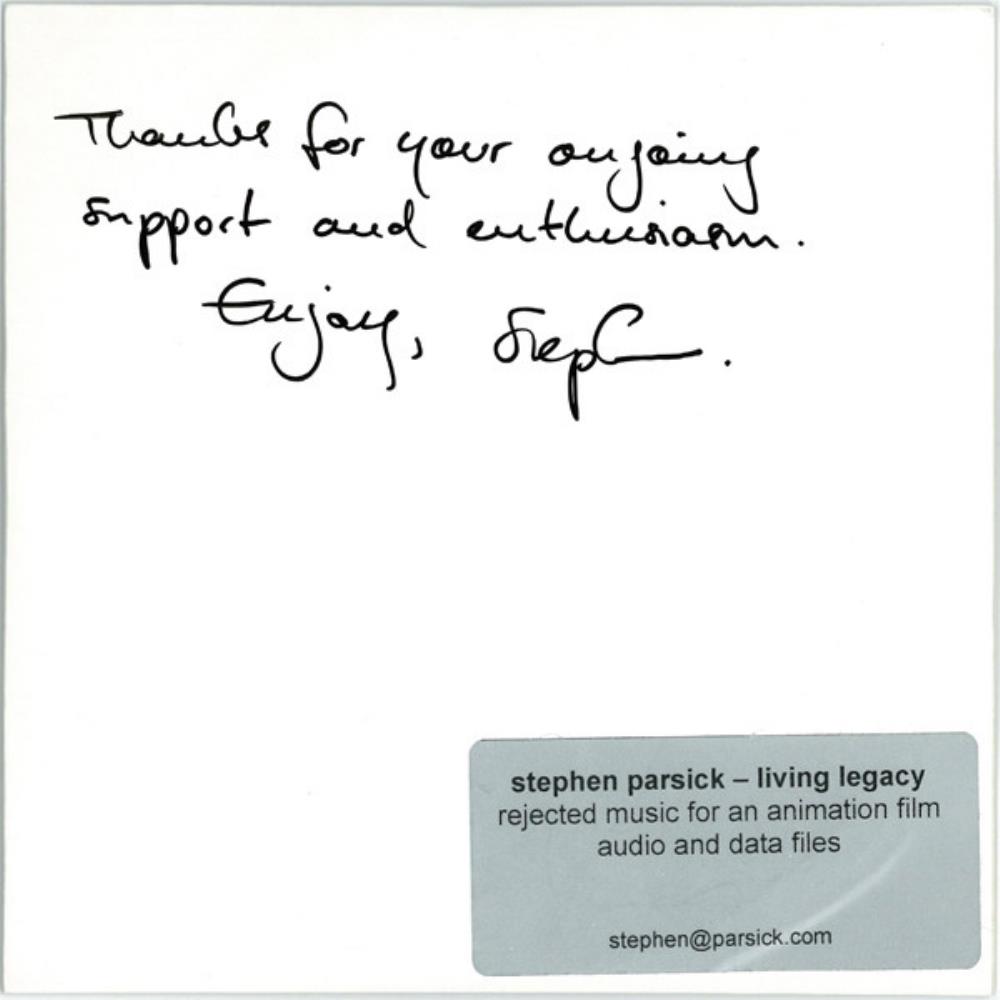 Thanks for your ongoing
support and enthusiasm.
Enjoy, Stephen.
stephen parsick – living legacy
rejected music for an animation film
audio and data files
stephen@parsick.com